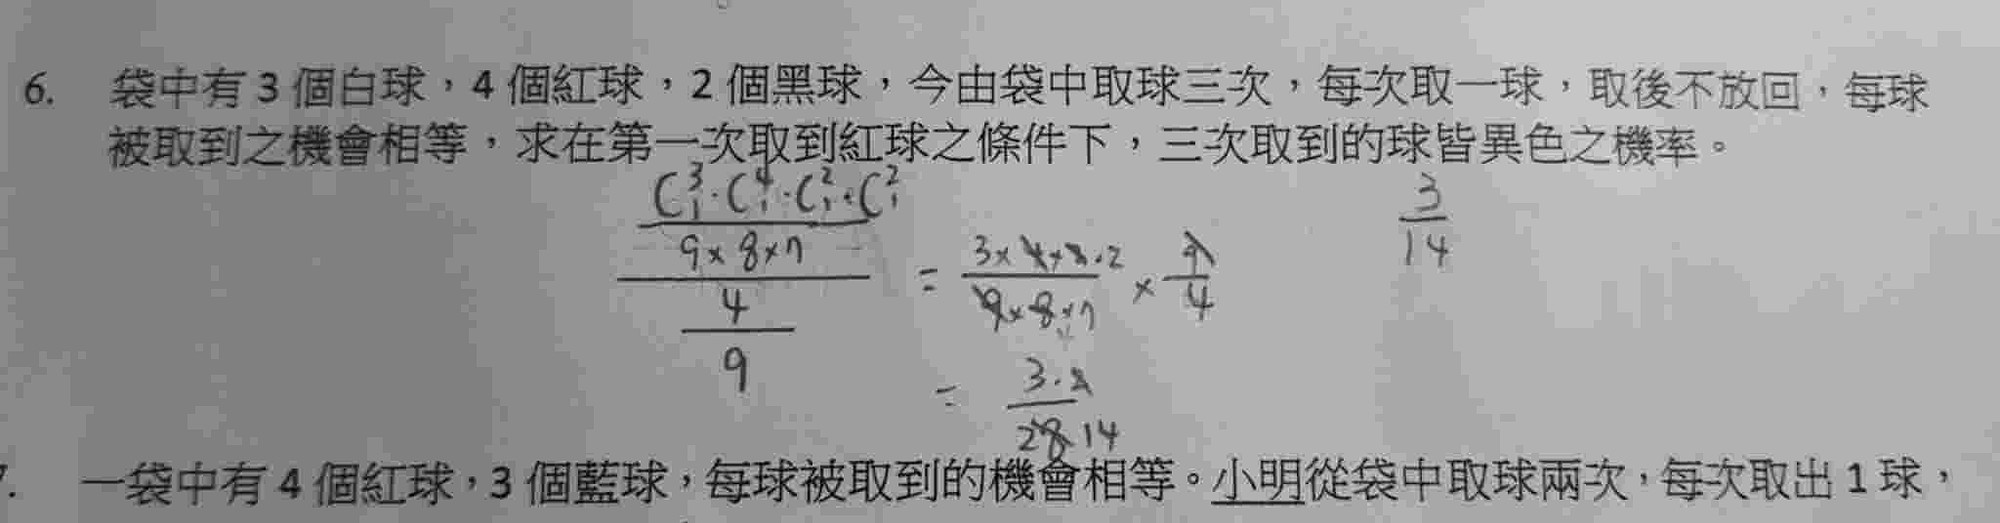 6. 袋中有 3 個白球，4 個紅球，2 個黑球，今由袋中取球三次，每次取一球，取後不放回，每球
被取到之機會相等，求在第一次取到紅球之條件下，三次取到的球皆異色之機率。
C³₁·C⁴₁·C²₁·C²₁
9×8×7
4
9
= 3×4×2·2 / 9×8×7 × 9/4
= 3·2 / 28 14
3/14
7. 一袋中有 4 個紅球，3 個藍球，每球被取到的機會相等。小明從袋中取球兩次，每次取出 1 球，